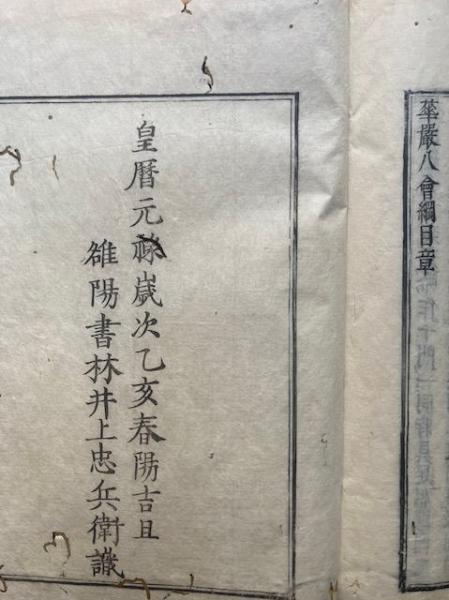 華嚴八會綱目章
皇曆元祿嵗次乙亥春陽吉旦
雒陽書林井上忠兵衛識